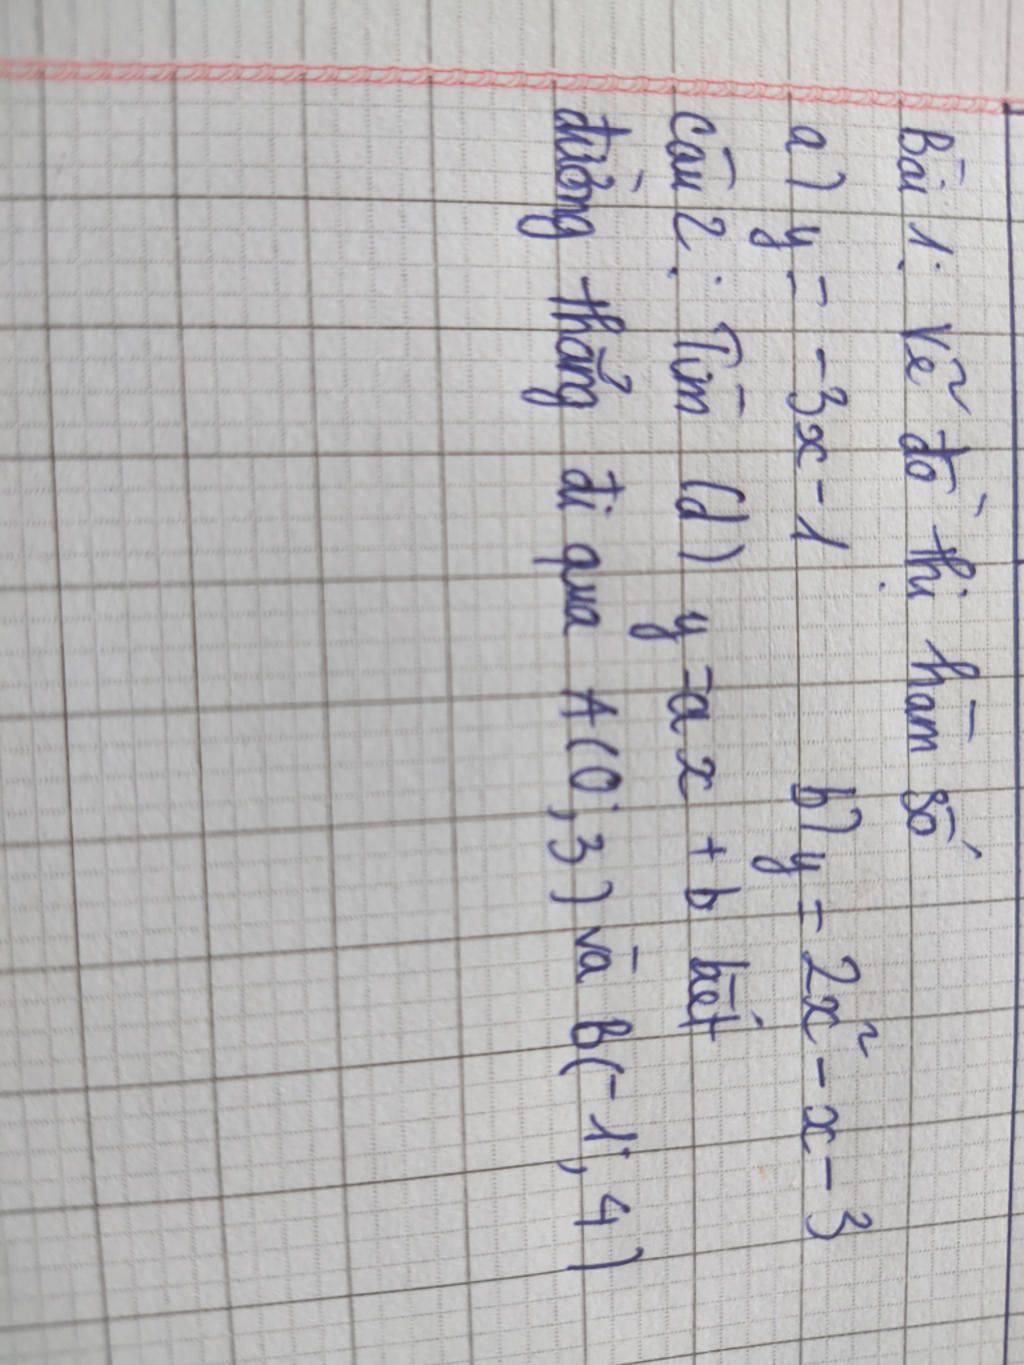 Bài 1: Vẽ đồ thị hàm số
a) y = -3x - 1 b) y = 2x² - x - 3
Câu 2: Tìm (d) y = ax + b biết
đường thẳng đi qua A(0; 3) và B(-1; 4)